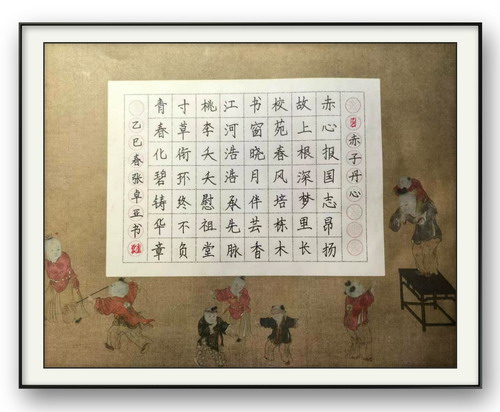 赤子丹心
赤心报国志昂扬
故土根深梦里长
校苑春风培栋木
书窗晓月伴芸香
江河浩浩永先脉
桃李夭夭慰祖堂
寸草衔环终不负
青春化碧铸华章
乙巳春张卓亚书